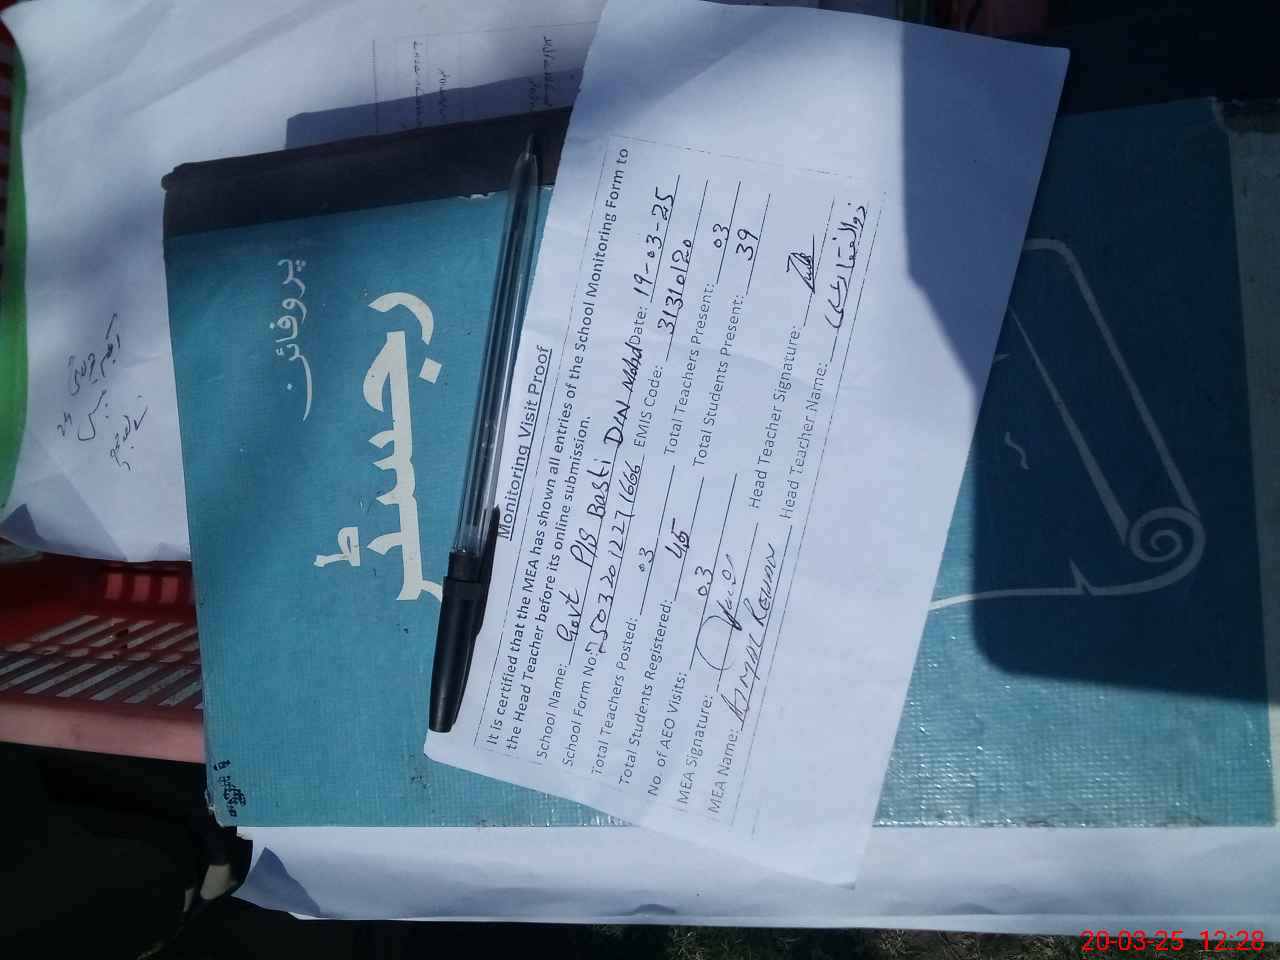 Monitoring Visit Proof
It is certified that the MEA has shown all entries of the School Monitoring Form to
the Head Teacher before its online submission.
School Name: Govt P/S Basti Din Mohd Date: 19-03-25
School Form No: 25032012271666 EMIS Code: 31310120
Total Teachers Posted: 03 Total Teachers Present: 03
Total Students Registered: 45 Total Students Present: 39
No. of AEO Visits: 03
MEA Signature: Head Teacher Signature:
MEA Name: Head Teacher Name: ذوالفقار علی
پروفائن
رجسٹر
20-03-25 12:28